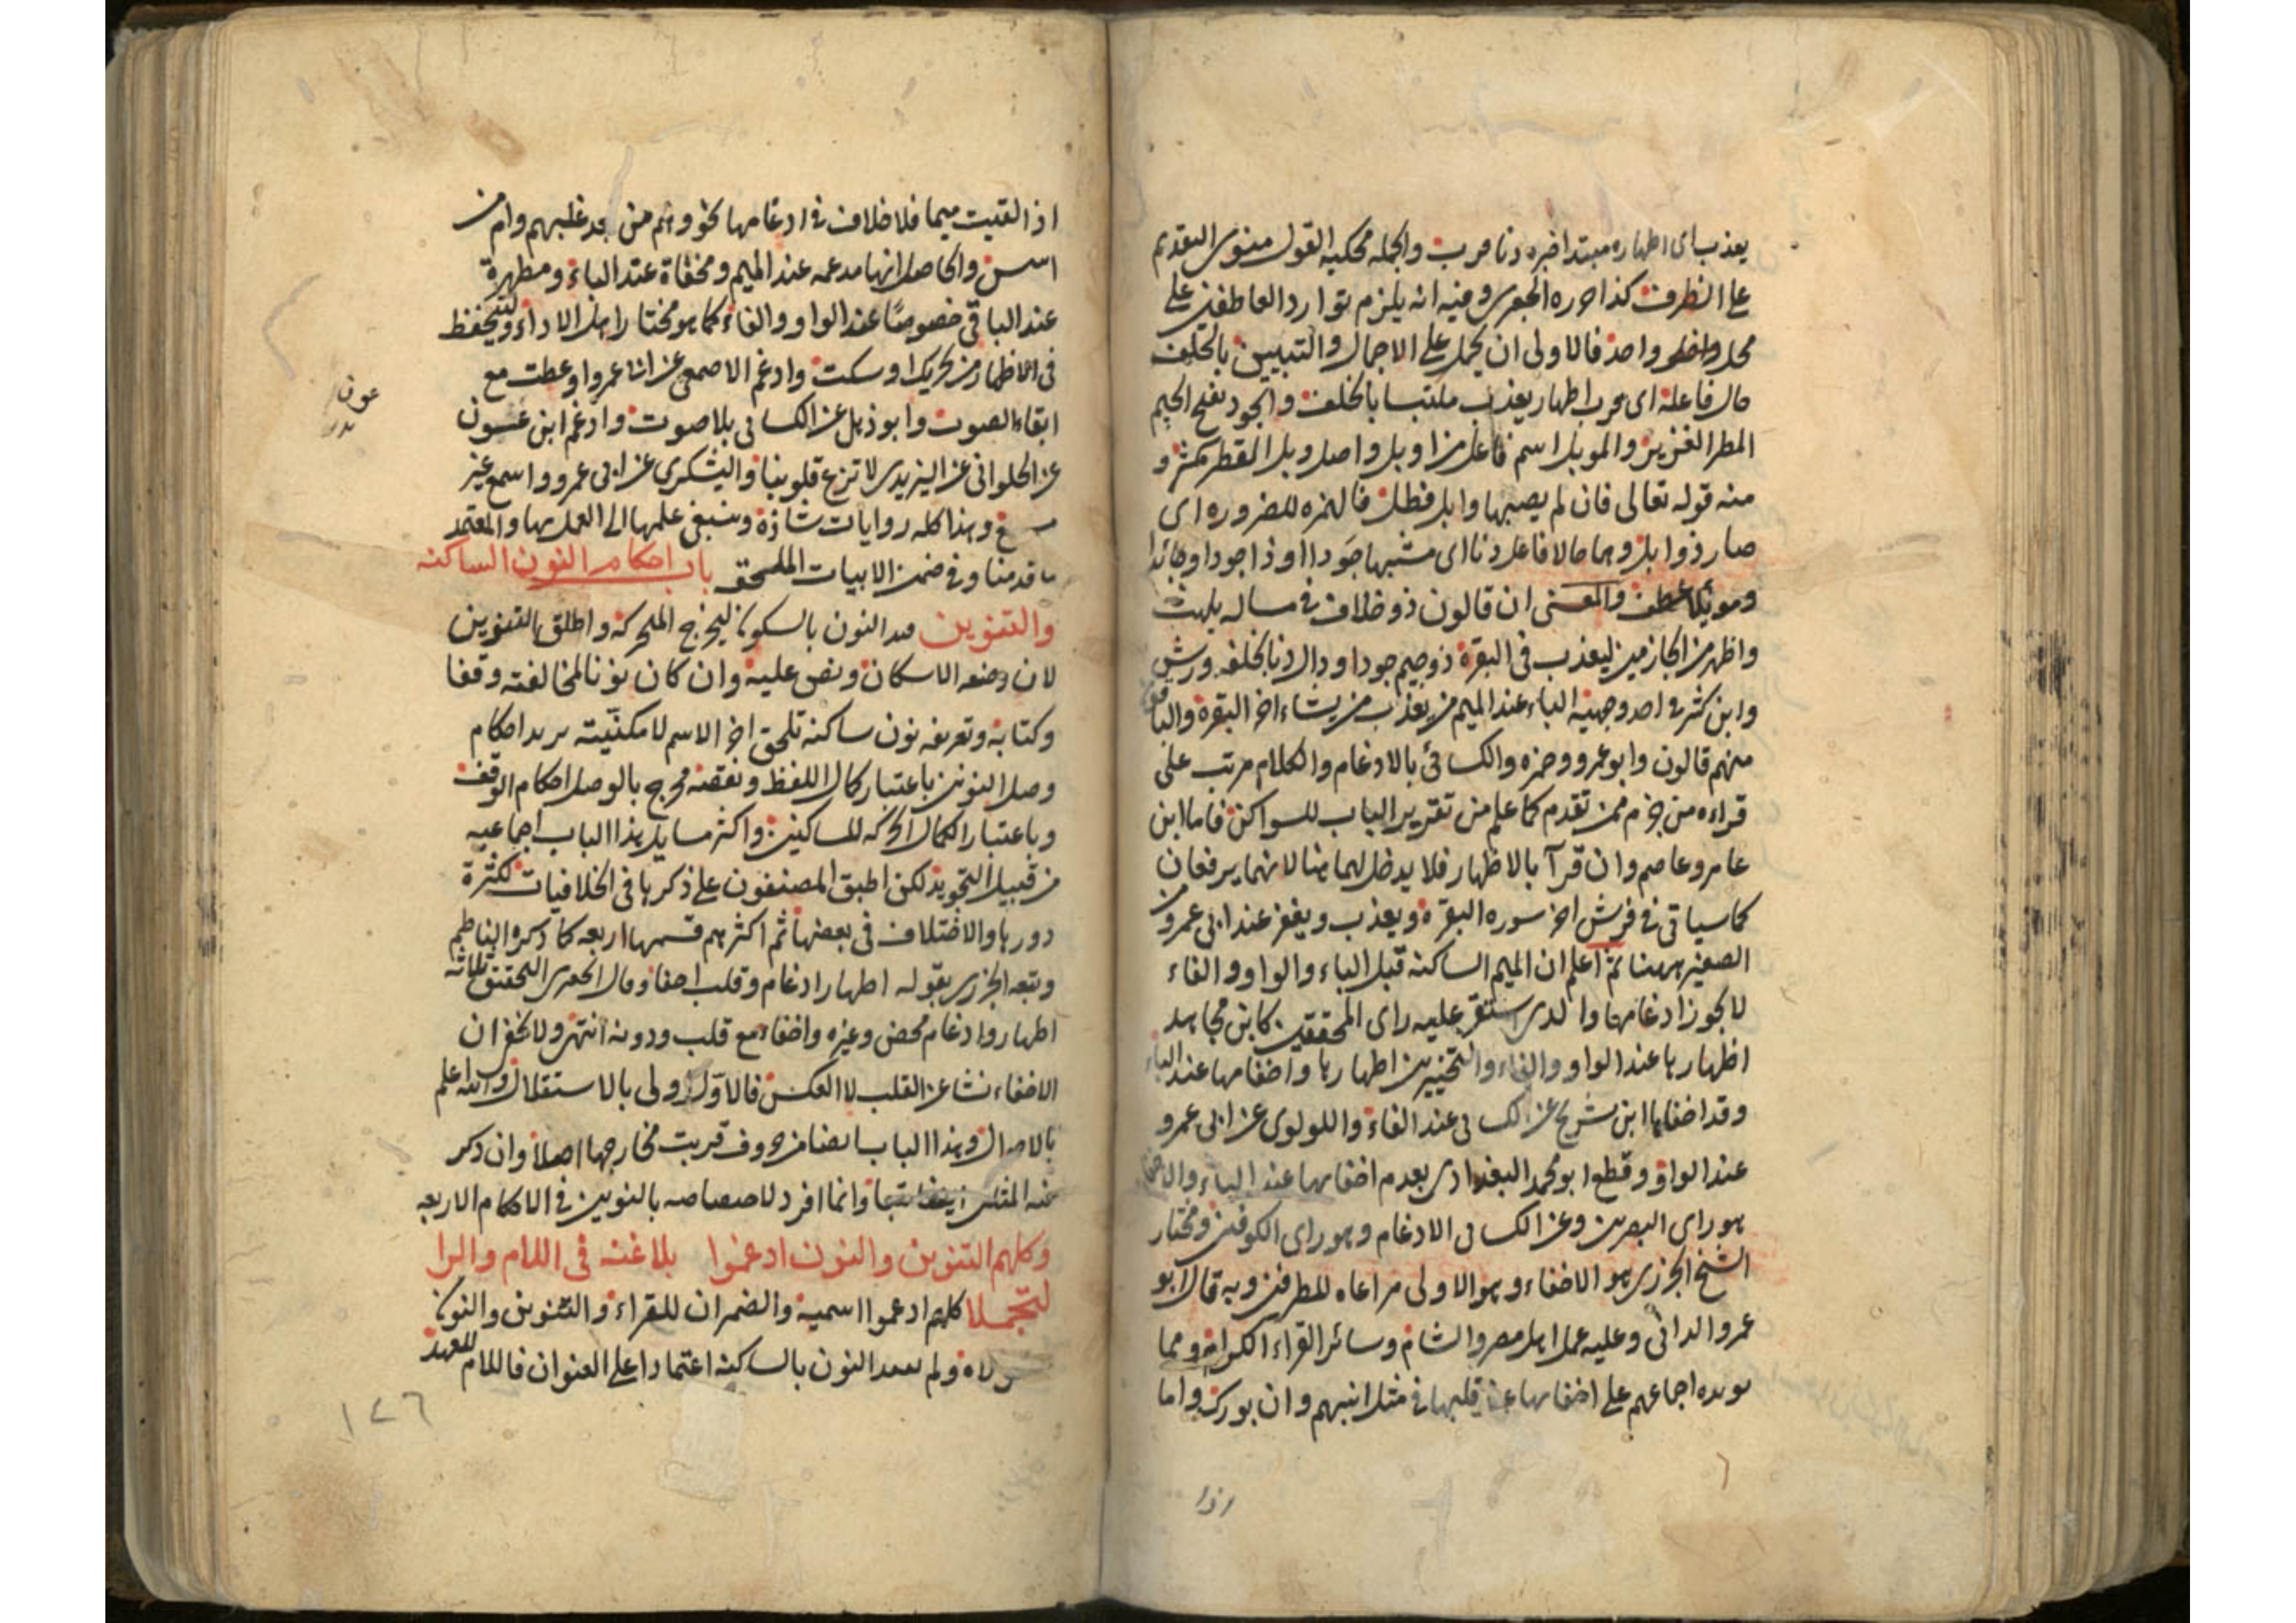 يعذب اى اظهاره مبتدا خبره دنا حرب والجمله محكيه القول منوى التقديم
على الظرف كذا حرره الجعبرى وفيه انه يلزم توارد العاطفين على
محل واحد فالاولى ان يحمل على الاجمال والتبيين بالخلف
حال فاعله اى حرب اظهار يعذب ملتبسا بالخلف والجود بفتح الجيم
المطر الغزير والموبل اسم فاعل من اوبل واصل وبل المطر كثر و
منه قوله تعالى فان لم يصبها وابل فطل فالهمزه للضروره اى
صار ذوا بل وهما حالا فاعل دنا اى مشبها جودا او ذا جود او جائدا
وموبلا عطف والمعنى ان قالون ذو خلاف فى مساله يلهث
واظهر من الجازمين ليعذب فى البقرة ذو جيم جودا ودال دنا بخلفه ورش
وابن كثير فى احد وجهيه الباء عند الميم من يعذب من يشاء اخر البقرة والباقون
منهم قالون وابو عمرو وحمزه والكسائى بالادغام والكلام مرتب على
قراءه من جزم ممن تقدم كما علم من تقرير الباب للسواكن فاما ابن
عامر وعاصم وان قرآ بالاظهار فلا يدخل لهما هنا لانهما يرفعان
كما سياتى فى فرش اخر سوره البقرة ويعذب ويغفر عند ابى عمرو من
الصغير ههنا ثم اعلم ان الميم الساكنه قبل الباء والواو والفاء
لا يجوز ادغامها والذى استقر عليه راى المحققين كابن مجاهد
اظهارها عند الواو والفاء والتخيير بين اظهارها واخفائها عند الباء
وقد اخفاها ابن شريح عن الكسائى عند الفاء واللولوى عن ابى عمرو
عند الواو وقطع ابو محمد البغدادى بعدم اخفائها عند الباء والاخفا
هو راى البصرين وعن الكسائى الادغام وهو راى الكوفين ومختار
الشيخ الجزرى هو الاخفاء وهو الاولى مراعاه للطرفين وبه قال ابو
عمرو الدانى وعليه عمل اهل مصر والشام وسائر القراء الكرام ومما
يويده اجماعهم على اخفائها عند قلبها فى مثل انبهم وان بورك واما
اذا
اذا لقيت ميما فلا خلاف فى ادغامها نحو وهم من بعد غلبهم وام من
اسس والحاصل انها مدغمه عند الميم ومخفاة عند الباء ومظهرة
عند الباقى خصوصًا عند الواو والفاء كما هو مختار اهل الاداء وليتحفظ
فى الاظهار من تحريك او سكت وادغم الاصمعى عن انا عمرو اوعظت مع
ابقاء الصوت وابو ذهل عن الكسائى بلا صوت وادغم ابن غسون
عن الحلوانى عن اليزيدى لا تزغ قلوبنا واليشكرى عن ابى عمرو واسمع غير
مسمع وهذا كله روايات شاذة وينبغى علمها الى العمل بها والمعتمد
ما قدمنا وفى ضمن الابيات الملحق باب احكام النون الساكنه
والتنوين قيد النون بالسكون ليخرج المتحركه واطلق التنوين
لان وضعه الاسكان ونص عليه وان كان نونا لمخالفته وقفا
وكتابة وتعريفه نون ساكنه تلحق اخر الاسم لامكنيته يريد احكام
وصل النونين باعتبار كمال اللفظ ونقصه فخرج بالوصل احكام الوقف
وباعتبار الكمال الحركه للساكنين واكثر مسايل هذا الباب اجماعيه
من قبيل التجويد لكن اطبق المصنفون على ذكرها فى الخلافيات لكثرة
دورها والاختلاف فى بعضها ثم اكثرهم قسمها اربعه كما ذكره الناظم
وتبعه الجزرى بقوله اظهار ادغام وقلب اخفا وقال الجعبرى التحقيق ثلاثه
اظهار وادغام محض وغيره واخفاء مع قلب ودونه انتهى ولا يخفى ان
الاخفاء نشا عن القلب لا العكس فالاول اولى بالاستقلال والله اعلم
بالاحوال وهذا الباب ايضا من حروف قربت مخارجها اصلا وان ذكر
منه المثلين تبعا وانما افرد لاختصاصه بالنوين فى الاحكام الاربعه
وكلهم التنوين والنون ادغموا بلا غنه فى اللام والرا
لتجملا كلهم ادغموا اسميه والضمران للقراء والتنوين والنون
ولاه ولم يقيد النون بالساكنه اعتمادا على العنوان فاللام للعهد
عون
١٤٦